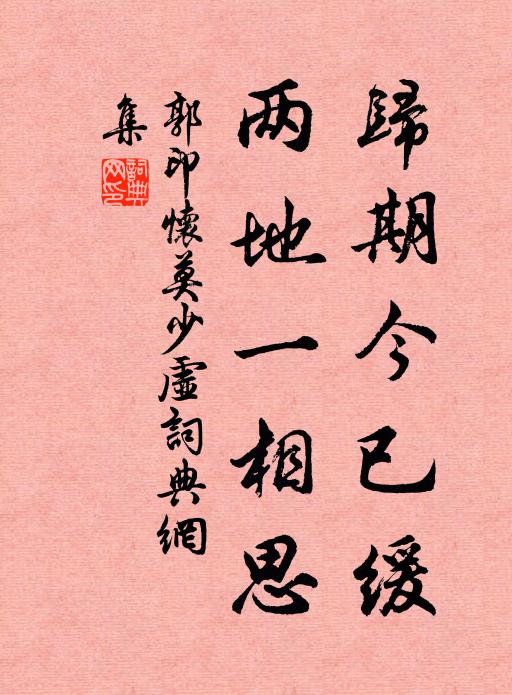 歸期今已緩
两地一相思
郭印懷莫少虛詞典網
集
詞典網印